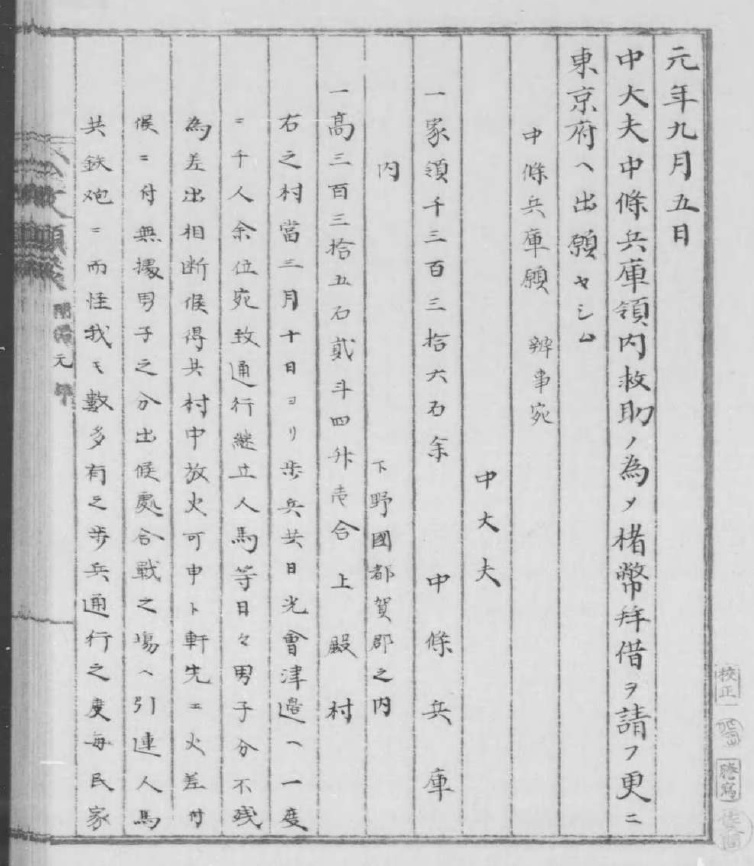 元年九月五日
中大夫中條兵庫領内救助ノ為メ楮幣拜借ヲ請フ更ニ
東京府ヘ出願セシム
中條兵庫願 辨事宛
中大夫
一家領千三百三拾六石余 中條兵庫
内 下野國都賀郡之内
一高三百三拾五石貮斗四升壱合 上殿村
右之村當三月十日ヨリ歩兵共日光會津邉ヘ一度
ニ千人余位宛致通行継立人馬等日々男子分不残
為差出相断候得共村中放火可申ト軒先ニ火差付
候ニ付無據男子之分出候處合戰之塲ヘ引連人馬
共鉄炮ニ而怪我モ數多有之歩兵通行之度毎民家
元年
校正
謄寫